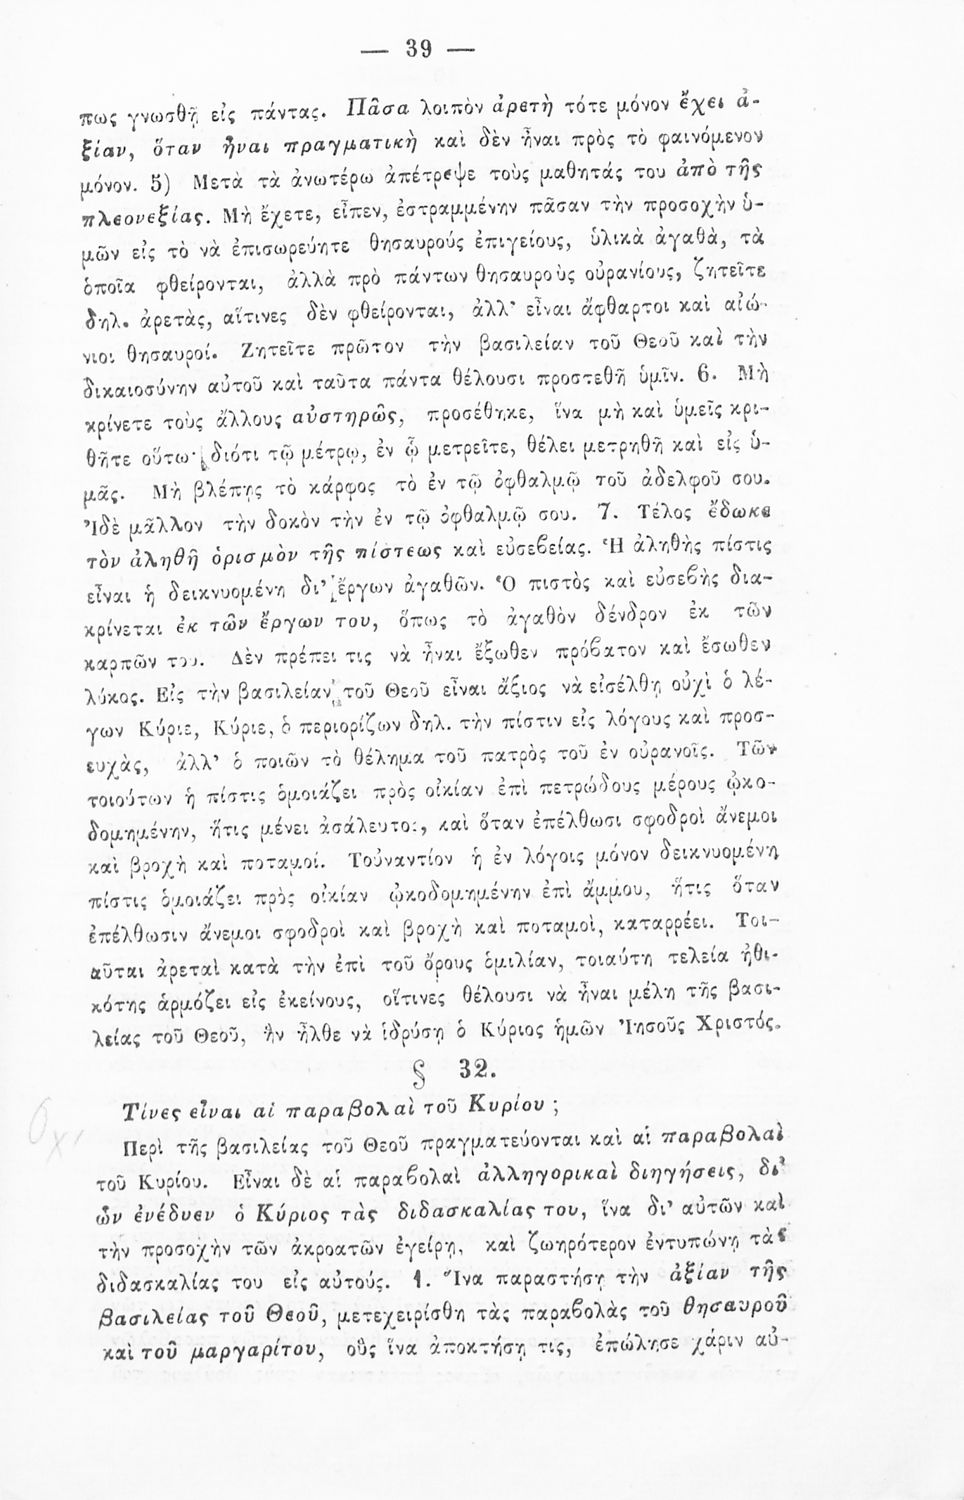 — 39 —
πως γνωσθῇ εἰς πάντας. Πᾶσα λοιπὸν ἀρετὴ τότε μόνον ἔχει ἀ-
ξίαν, ὅταν ἦναι πραγματικὴ καὶ δὲν ἦναι πρὸς τὸ φαινόμενον
μόνον. 5) Μετὰ τὰ ἀνωτέρω ἀπέτρεψε τοὺς μαθητάς του ἀπὸ τῆς
πλεονεξίας. Μὴ ἔχετε, εἶπεν, ἐστραμμένην πᾶσαν τὴν προσοχὴν ὑ-
μῶν εἰς τὸ νὰ ἐπισωρεύητε θησαυρούς ἐπιγείους, ὑλικὰ ἀγαθὰ, τὰ
ὁποῖα φθείρονται, ἀλλὰ πρὸ πάντων θησαυροὺς οὐρανίους, ζητεῖτε
δηλ. ἀρετὰς, αἵτινες δὲν φθείρονται, ἀλλ' εἶναι ἄφθαρτοι καὶ αἰώ-
νιοι θησαυροί. Ζητεῖτε πρῶτον τὴν βασιλείαν τοῦ Θεοῦ καὶ τὴν
δικαιοσύνην αὐτοῦ καὶ ταῦτα πάντα θέλουσι προστεθῆ ὑμῖν. 6. Μὴ
κρίνετε τοὺς ἄλλους αὐστηρῶς, προσέθηκε, ἵνα μὴ καὶ ὑμεῖς κρι-
θῆτε οὕτω· διότι τῷ μέτρῳ, ἐν ᾧ μετρεῖτε, θέλει μετρηθῆ καὶ εἰς ὑ-
μᾶς. Μὴ βλέπῃς τὸ κάρφος τὸ ἐν τῷ ὀφθαλμῷ τοῦ ἀδελφοῦ σου.
Ἰδὲ μᾶλλον τὴν δοκὸν τὴν ἐν τῷ ὀφθαλμῷ σου. 7. Τέλος ἔδωκε
τὸν ἀληθῆ ὁρισμὸν τῆς πίστεως καὶ εὐσεβείας. Ἡ ἀληθὴς πίστις
εἶναι ἡ δεικνυομένη δι' ἔργων ἀγαθῶν. Ὁ πιστὸς καὶ εὐσεβὴς δια-
κρίνεται ἐκ τῶν ἔργων του, ὅπως τὸ ἀγαθὸν δένδρον ἐκ τῶν
καρπῶν του. Δὲν πρέπει τις νὰ ἦναι ἔξωθεν πρόβατον καὶ ἔσωθεν
λύκος. Εἰς τὴν βασιλείαν τοῦ Θεοῦ εἶναι ἄξιος νὰ εἰσέλθῃ οὐχὶ ὁ λέ-
γων Κύριε, Κύριε, ὁ περιορίζων δηλ. τὴν πίστιν εἰς λόγους καὶ προσ-
ευχὰς, ἀλλ' ὁ ποιῶν τὸ θέλημα τοῦ πατρὸς τοῦ ἐν οὐρανοῖς. Τῶν
τοιούτων ἡ πίστις ὁμοιάζει πρὸς οἰκίαν ἐπὶ πετρώδους μέρους ᾠκο-
δομημένην, ἥτις μένει ἀσάλευτος, καὶ ὅταν ἐπέλθωσι σφοδροὶ ἄνεμοι
καὶ βροχὴ καὶ ποταμοί. Τοὐναντίον ἡ ἐν λόγοις μόνον δεικνυομένη
πίστις ὁμοιάζει πρὸς οἰκίαν ᾠκοδομημένην ἐπὶ ἄμμου, ἥτις ὅταν
ἐπέλθωσιν ἄνεμοι σφοδροὶ καὶ βροχὴ καὶ ποταμοὶ, καταρρέει. Τοι-
αῦται ἀρεταὶ κατὰ τὴν ἐπὶ τοῦ ὄρους ὁμιλίαν, τοιαύτη τελεία ἠθι-
κότης ἁρμόζει εἰς ἐκείνους, οἵτινες θέλουσι νὰ ἦναι μέλη τῆς βασι-
λείας τοῦ Θεοῦ, ἣν ἦλθε νὰ ἱδρύσῃ ὁ Κύριος ἡμῶν Ἰησοῦς Χριστός.
§ 32.
Τίνες εἶναι αἱ παραβολαὶ τοῦ Κυρίου ;
Ὄχι
Περὶ τῆς βασιλείας τοῦ Θεοῦ πραγματεύονται καὶ αἱ παραβολαὶ
τοῦ Κυρίου. Εἶναι δὲ αἱ παραβολαὶ ἀλληγορικαὶ διηγήσεις, δι'
ὧν ἐνέδυεν ὁ Κύριος τὰς διδασκαλίας του, ἵνα δι' αὐτῶν καὶ
τὴν προσοχὴν τῶν ἀκροατῶν ἐγείρῃ, καὶ ζωηρότερον ἐντυπώνῃ τὰς
διδασκαλίας του εἰς αὐτούς. 1. Ἵνα παραστήσῃ τὴν ἀξίαν τῆς
βασιλείας τοῦ Θεοῦ, μετεχειρίσθη τὰς παραβολὰς τοῦ θησαυροῦ
καὶ τοῦ μαργαρίτου, οὓς ἵνα ἀποκτήσῃ τις, ἐπώλησε χάριν αὐ-